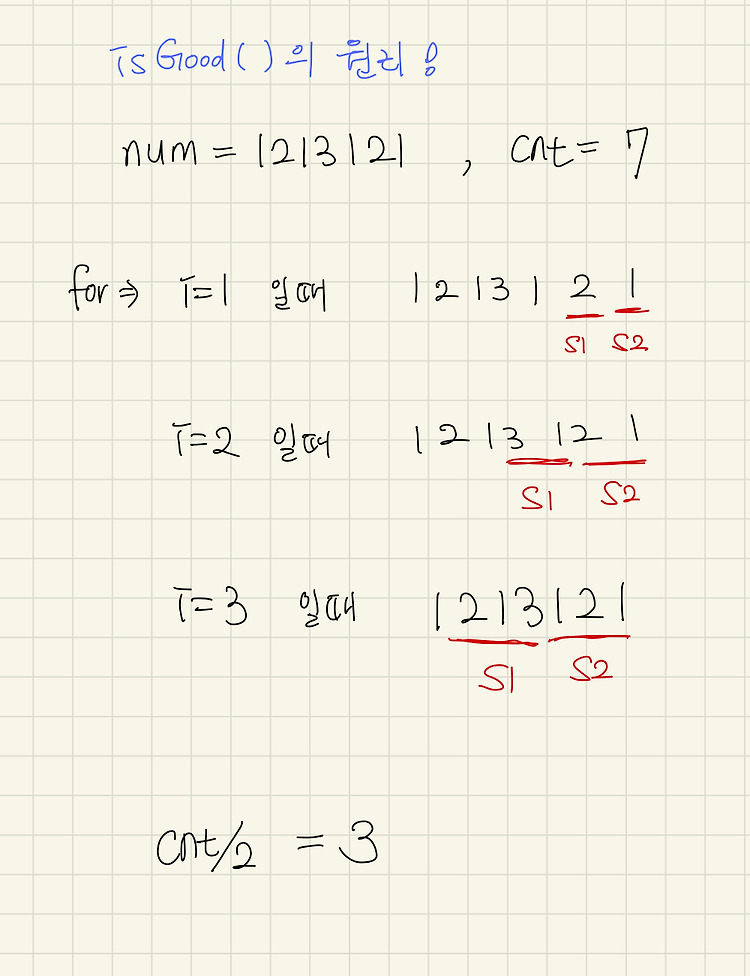 isGood()의 원리!
num = 1213121 , cnt = 7
for ⇒ i=1 일때 1 2 1 3 1 2 1
S1 S2
i=2 일때 1 2 1 3 1 2 1
S1 S2
i=3 일때 1 2 1 3 1 2 1
S1 S2
cnt/2 = 3